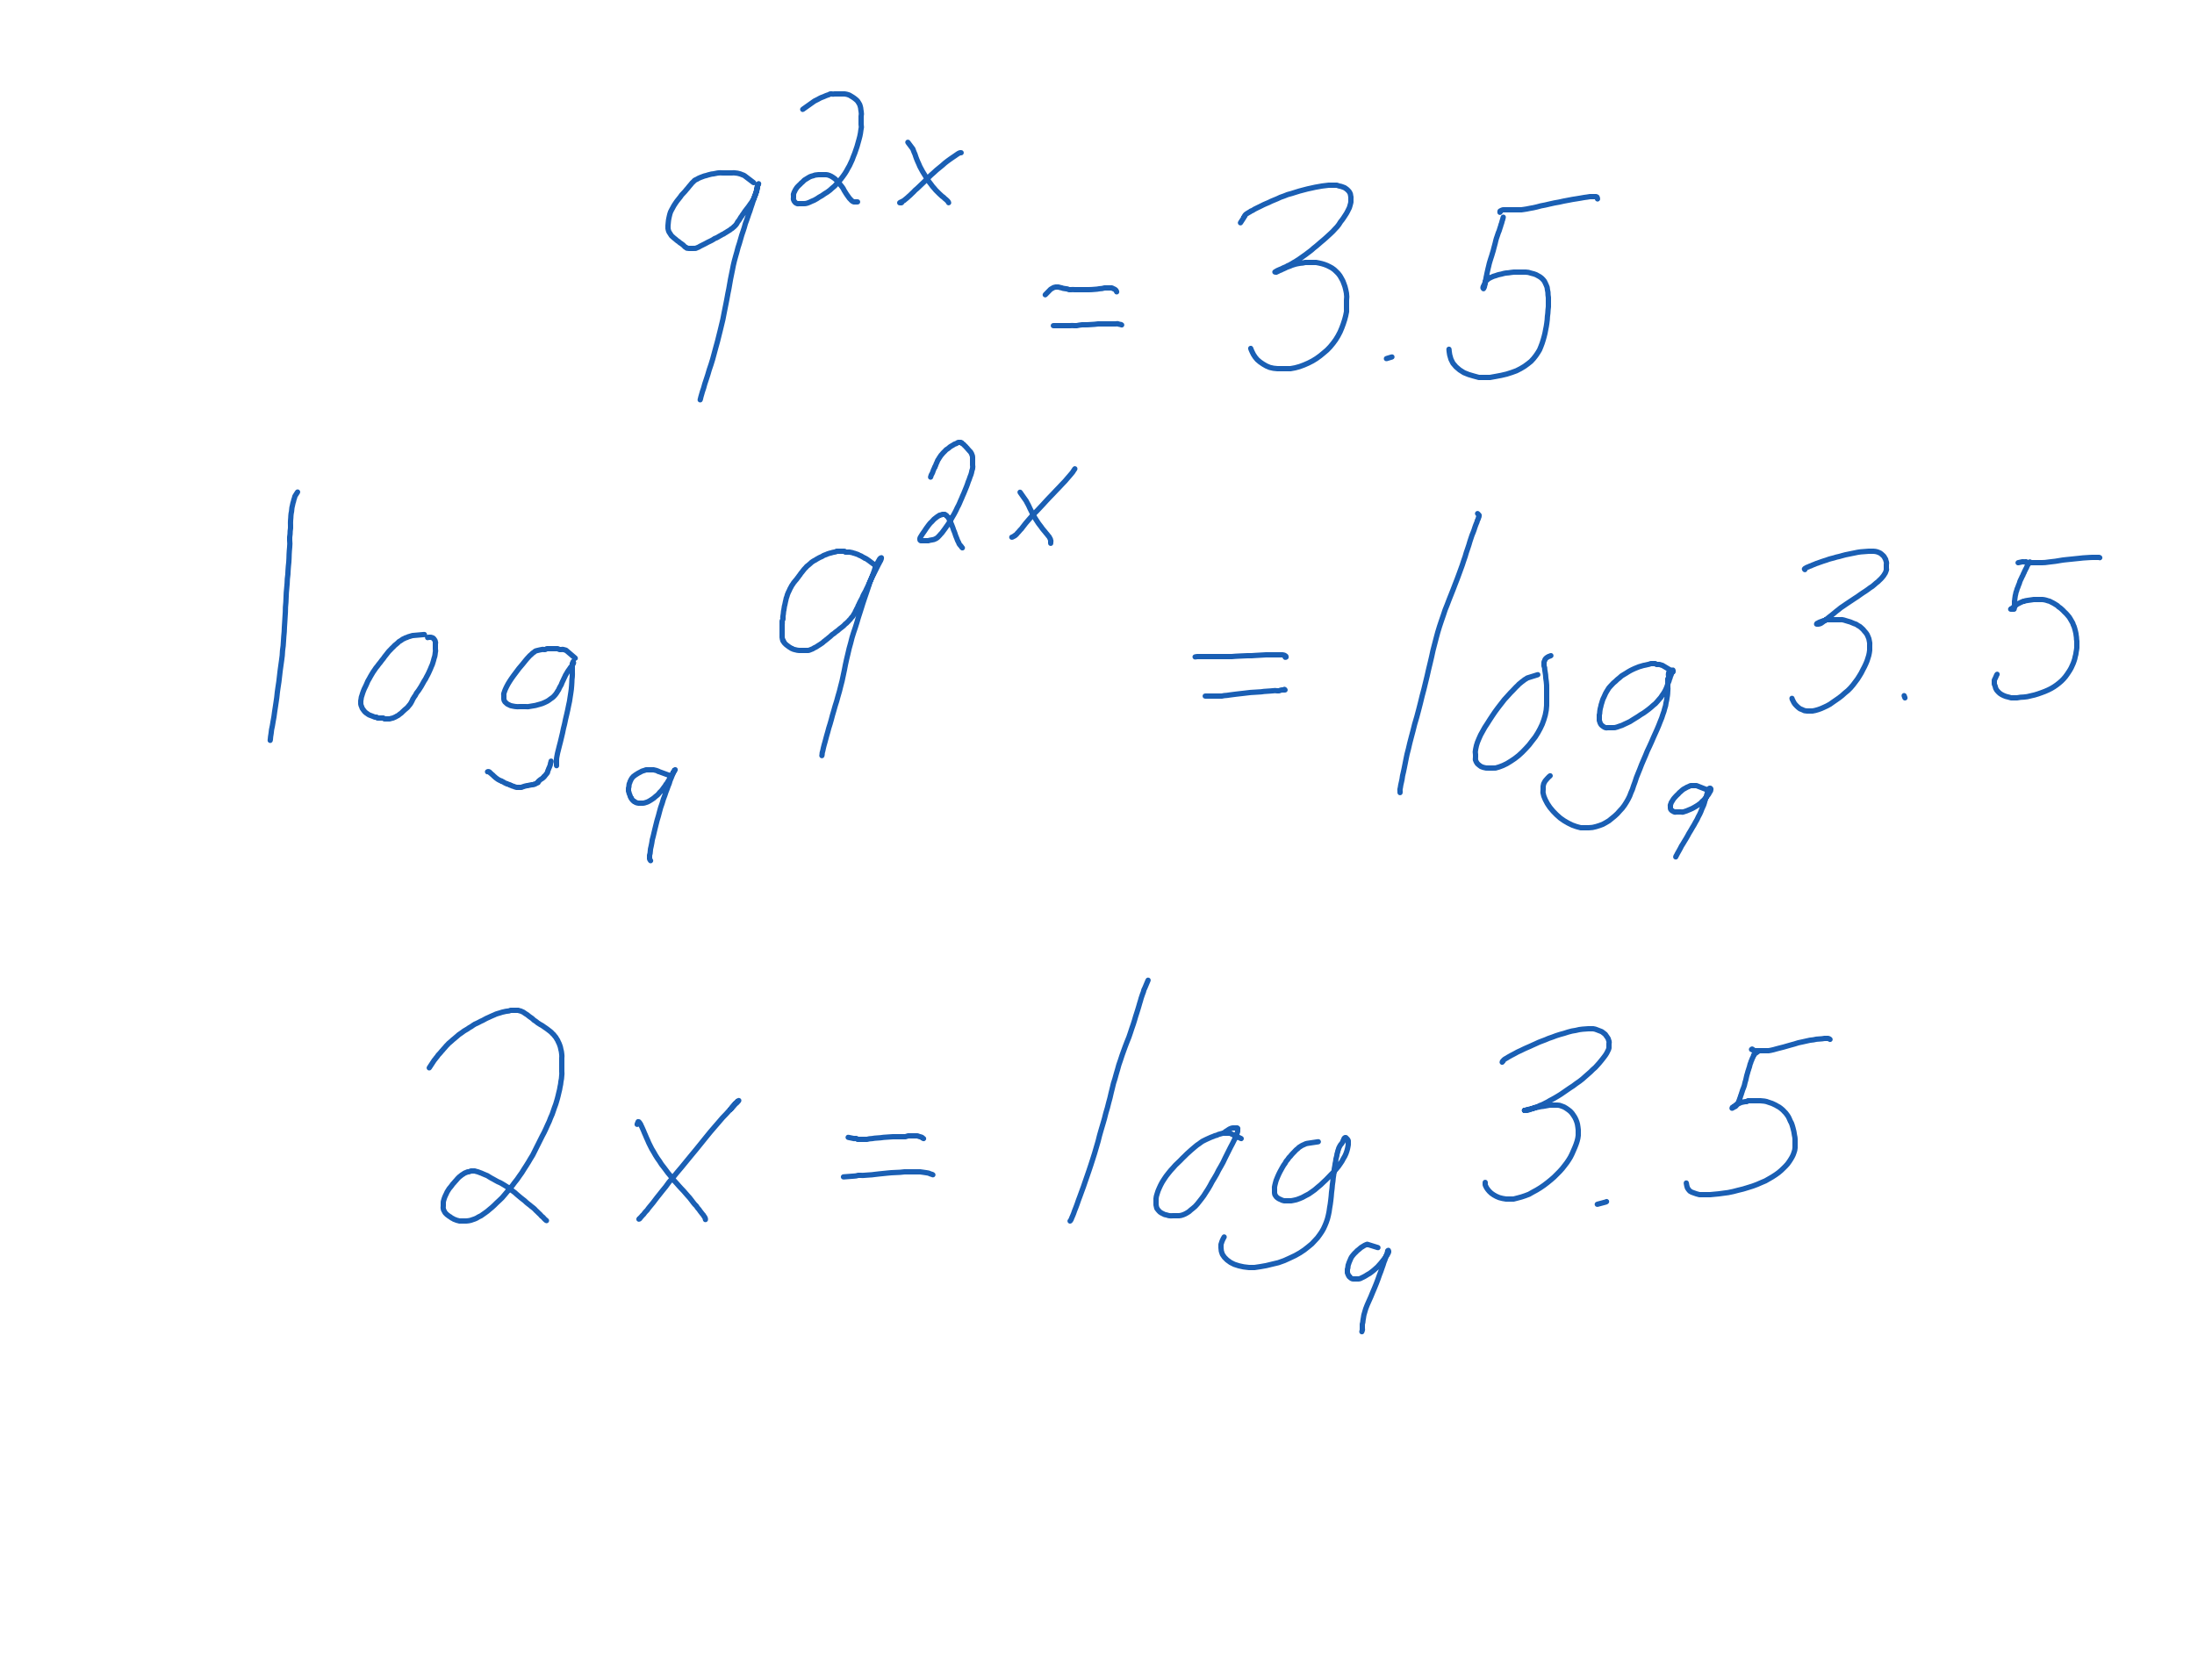 9^{2x} = 3.5
log_9 9^{2x} = log_9 3.5
2x = log_9 3.5